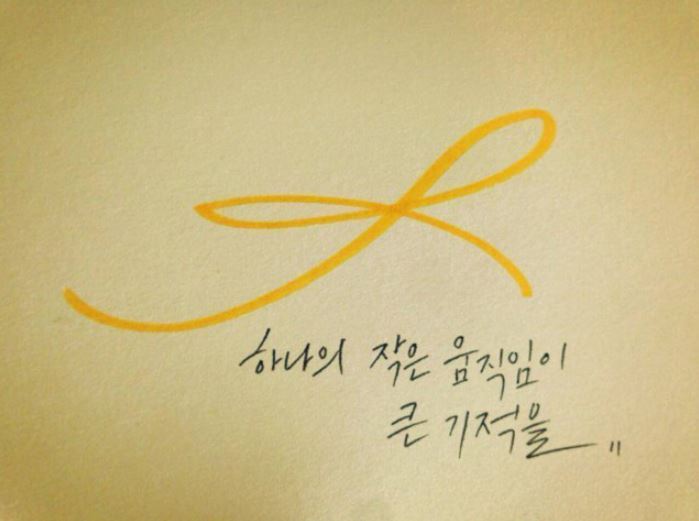 하나의 작은 움직임이
큰 기적을 "